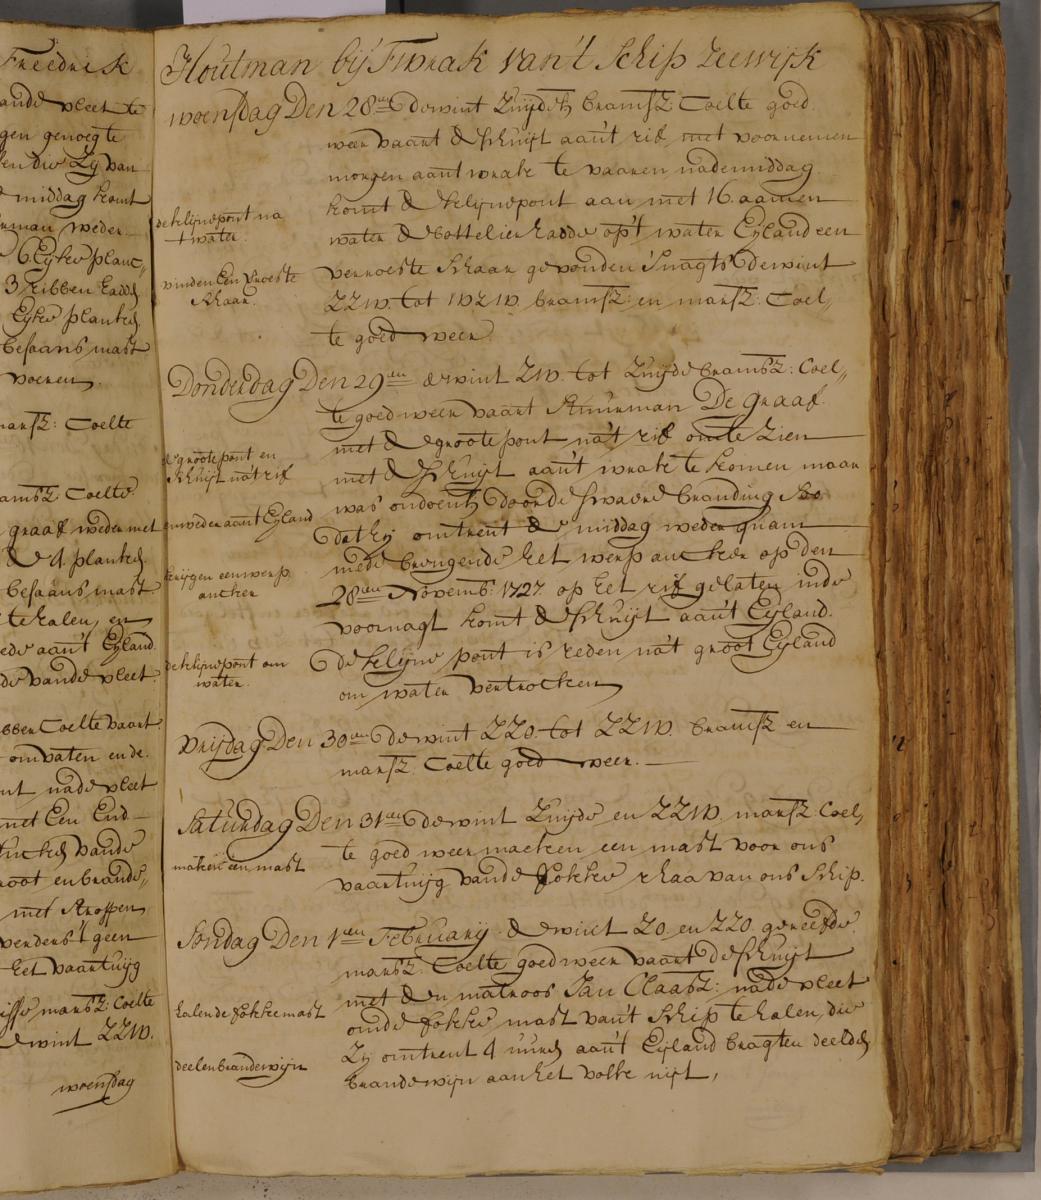 Freedrik
ande vleet te
gen genoegte
en die Zij van
middag komt
rman weder
6 Eyke planc„
3 ribben hadd
Eyke plankē
besaans mast
voeren.
marsz: Coelte
amsz Coelte
graaf weder met
de 4 plankē
besaans mast
te halen, en
ede aan't Eyland
de vande vleet
bben Coelte vaart
om vaten ende
nt nade vleet
met Een End
stuckē vande
root en brande„
met stroppen
verders 't geen
het vaartuijg
marsz: Coelte
wint ZZW.
woensdag
Houtman bij 't wrak van't Schip Zeewijk
woensdag Den 28en de wint Zuijdelk bramsz Coelte goed
weer vaart de schuijt aan't rif met voornemen
morgen aant wrak te vaaren nademiddag
komt de kleijne pont aan met 16. aamen
water de bottelier hadde op't water Eyland een
verroeste schaar gevonden 's nagts de wint
ZZW. tot WZW bramsz: en marsz: Coel„
te goed weer
de klijne pont na
t water.
vinden Een vroeste
schaar.
Donderdag Den 29en de wint ZW. tot Zuijde bramsz: Coel„
te goed weer vaart Stuurman De Graaf
met de groote pont na't rif om te zien
met de schuijt aan't wrak te komen maar
was ondoenlk door de swaere branding soo
dat hij omtrent de middag weder quam
mede brengende het werp ancker op den
28en Novemb: 1727. op het rif gelaten inde
voornagt komt de schuijt aan't Eyland.
de klijne pont is heden na't groot Eyland
om water vertrocken
de groote pont en
schuijt na't rif
en weder aant Eyland
krijgen een werp
ancker
de klijne pont om
water.
Vrijdag Den 30en de wint ZZO. tot ZZW. bramsz en
marsz. Coelte goed weer.
Saturdag Den 31en de wint Zuijde en ZZW. marsz Coel„
te goed weer maeken een mast voor ons
vaartuijg vande fokke rhaa van ons Schip.
maken een mast
Sondag Den 1en February de wint ZO. en ZZO. gereefde
marsz: Coelte goed weer vaart de schuijt
met den matroos Jan Claasz: nade vleet
om de fokke mast van't Schip te halen, die
Zij omtrent 4 uurē aan't Eyland bragten deeldē
brandewijn aan het volk uijt,
halen de fokke mast
deelen brandewijn